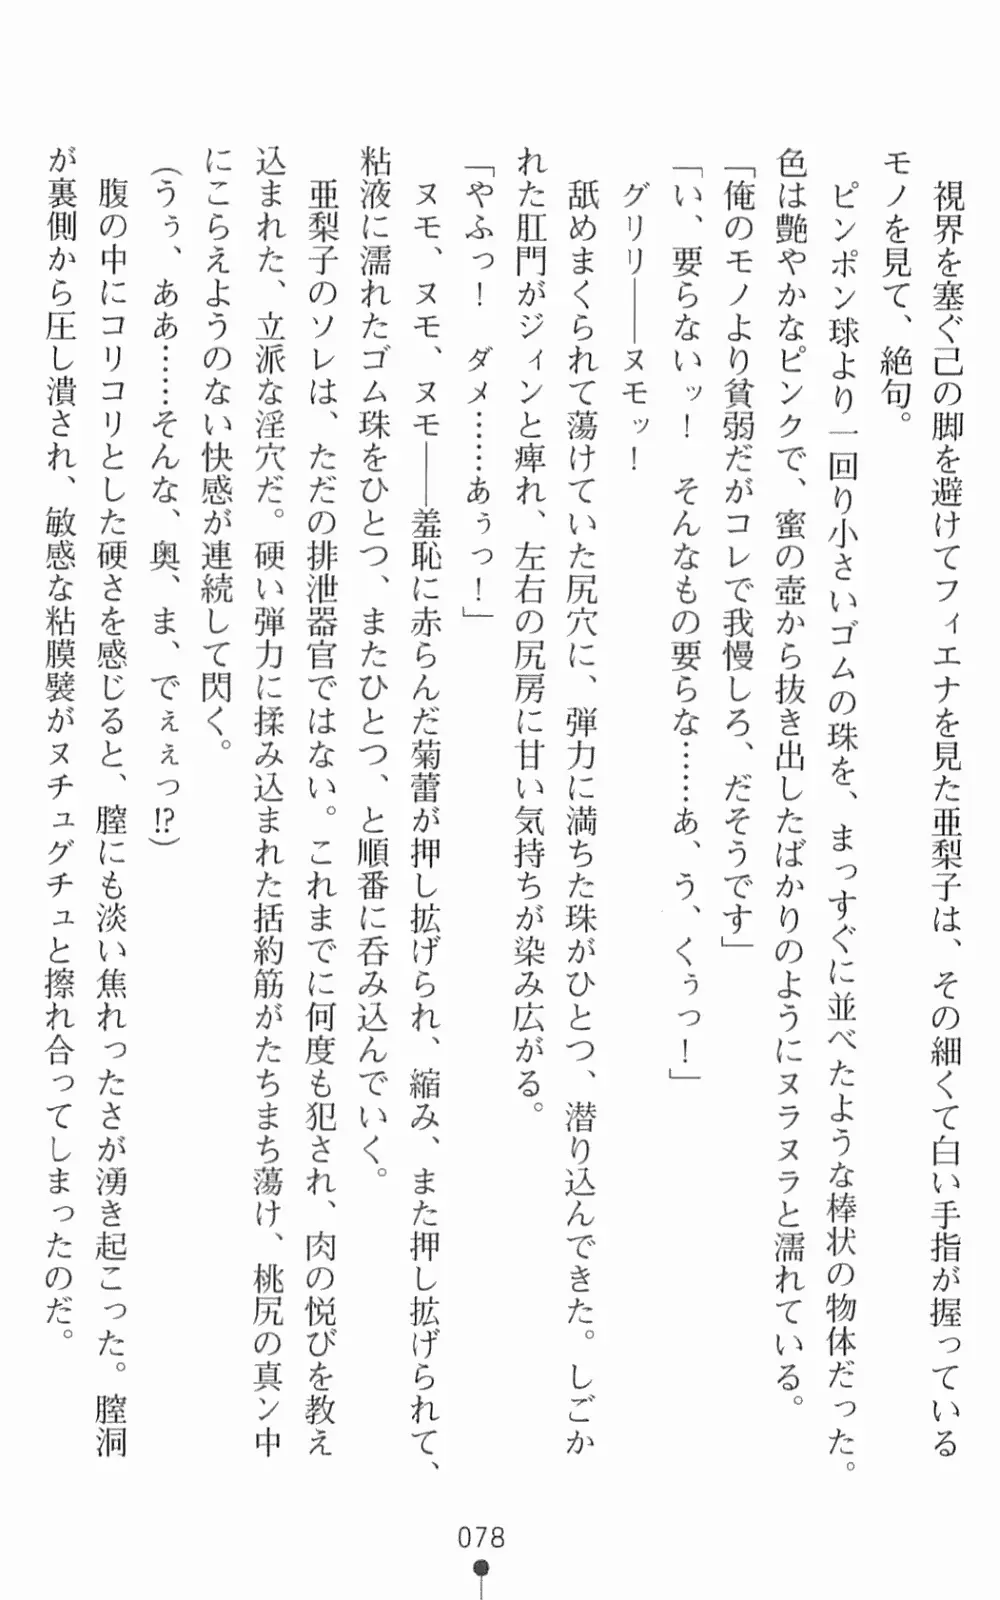 視界を塞ぐ己の脚を避けてフィエナを見た亜梨子は、その細くて白い手指が握っている
モノを見て、絶句。
ピンポン球より一回り小さいゴムの珠を、まっすぐに並べたような棒状の物体だった。
色は艶やかなピンクで、蜜の壺から抜き出したばかりのようにヌラヌラと濡れている。
「俺のモノより貧弱だがコレで我慢しろ、だそうです」
「い、要らないッ！　そんなもの要らな……あ、う、くぅっ！」
グリリ――ヌモッ！
舐めまくられて蕩けていた尻穴に、弾力に満ちた珠がひとつ、潜り込んできた。しごか
れた肛門がジィンと痺れ、左右の尻房に甘い気持ちが染み広がる。
「やふっ！　ダメ……あぅっ！」
ヌモ、ヌモ、ヌモ――羞恥に赤らんだ菊蕾が押し拡げられ、縮み、また押し拡げられて、
粘液に濡れたゴム珠をひとつ、またひとつ、と順番に呑み込んでいく。
亜梨子のソレは、ただの排泄器官ではない。これまでに何度も犯され、肉の悦びを教え
込まれた、立派な淫穴だ。硬い弾力に揉み込まれた括約筋がたちまち蕩け、桃尻の真ン中
にこらえようのない快感が連続して閃く。
(うぅ、ああ……そんな、奥、ま、でぇぇっ!?)
腹の中にコリコリとした硬さを感じると、膣にも淡い焦れったさが湧き起こった。膣洞
が裏側から圧し潰され、敏感な粘膜襞がヌチュグチュと擦れ合ってしまったのだ。
078